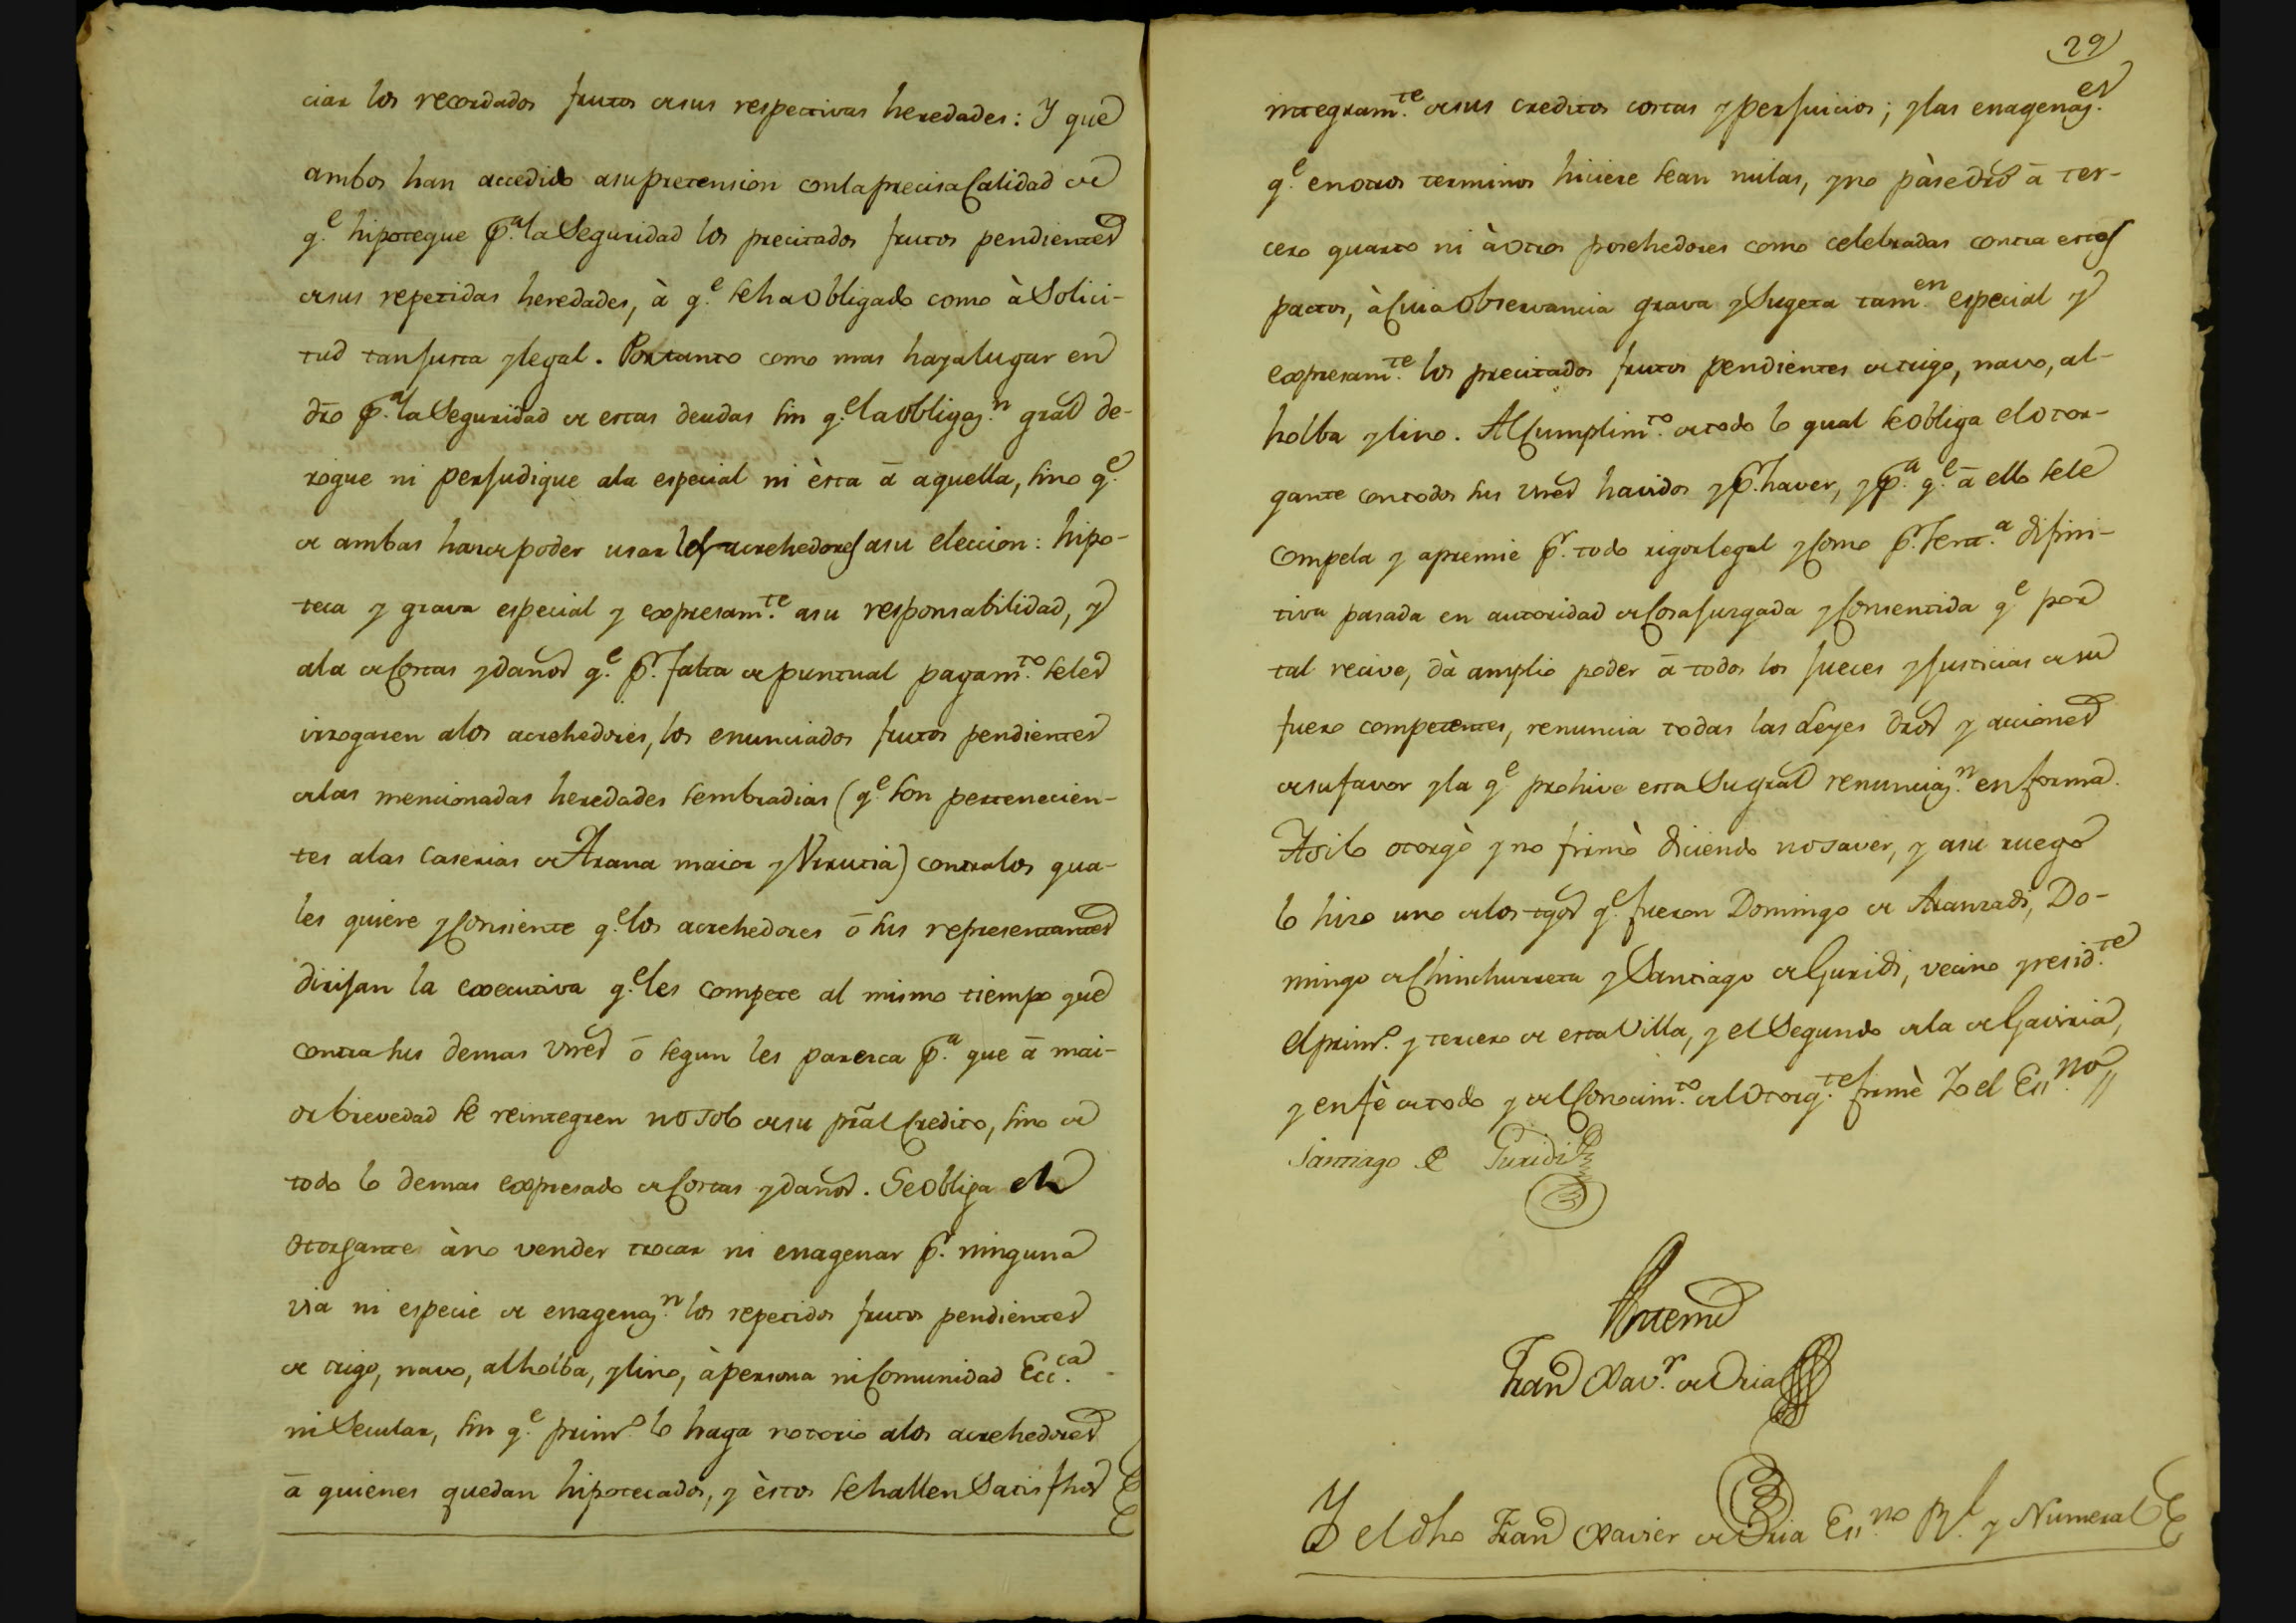 ciar los recordados frutos de sus respectivas heredades: Y que
ambos han accedido a su pretension con la precisa Calidad de
q.e hipoteque p.a la Seguridad los precitados frutos pendientes
de sus repetidas heredades, à q.e se ha Obligado como à Solici-
tud tan justa y legal. Portanto como mas haya lugar en
dro p.a la Seguridad de estas deudas sin q.e la obligaz.n gral de-
rogue ni perjudique a la especial ni èsta ā aquella, sino q.e
de ambas haia de poder usar los acrehedores a su eleccion: hipo-
teca y grava especial y expresam.te a su responsabilidad, y
a la de Costas y daños q.e p.r falta de puntual pagam.to se les
irrogaren a los acrehedores, los enunciados frutos pendientes
de las mencionadas heredades sembradias (q.e son pertenecien-
tes a las Caserias de Arana maior y Urrutia) contra los qua-
les quiere y Consiente q.e los acrehedores ō sus representantes
dirijan la executiva q.e les compete al mismo tiempo que
contra sus demas vnes ō segun les paresca p.a que ā mai-
or brevedad se reintegren no solo de su pral Credito, sino de
todo lo demas expresado de Costas y daños. Se obliga el
Otorgante à no vender trocar ni enagenar p.r ninguna
via ni especie de enagenaz.n los repetidos frutos pendientes
de trigo, navo, alholba, y lino, à persona ni Comunidad Ecc.ca
ni Secular, sin q.e prim.o lo haga notorio a los acrehedores
ā quienes quedan hipotecados, y èstos se hallen Satisfhos
29
integram.te de sus creditos costas y perjuicios; y las enagenaz.es
q.e en otros terminos hiciere sean nulas, y no pàse dro ā ter-
cero quarto ni à otros posehedores como celebradas contra estos
pactos, à Cuia Observancia grava y Sugeta tam.en especial y
expresam.te los precitados frutos pendientes de trigo, navo, al-
holba y lino. Al Cumplim.to de todo lo qual se obliga el otor-
gante con todos sus vnes havidos y p.r haver, y p.a q.e ā ello se le
Compela y apremie p.r todo rigor legal y Como p.r Sent.a difini-
tiva pasada en autoridad de Cosa juzgada y Consentida q.e por
tal recive, dà amplio poder ā todos los jueces y justicias de su
fuero competentes, renuncia todas las Leyes dros y acciones
de su favor y la q.e prohive esta Su gral renunciaz.n en forma.
Asi lo otorgò y no firmò diciendo no saver, y a su ruego
lo hizo uno de los tgos q.e fueron Domingo de Aranzadi, Do-
mingo de Chinchurreta y Santiago de Guridi, vecino y resid.te
el prim.o y tercero de esta Villa, y el Segundo de la de Gaviria,
y en fè de todo y del Conocim.to del Otorg.te firmè Yo el Ess.no //
Santiago de Guridi
Antemi
Fran.co Xav.r de Oria
Y el dho Fran.co Xavier de Oria Ess.no R.l y Numeral